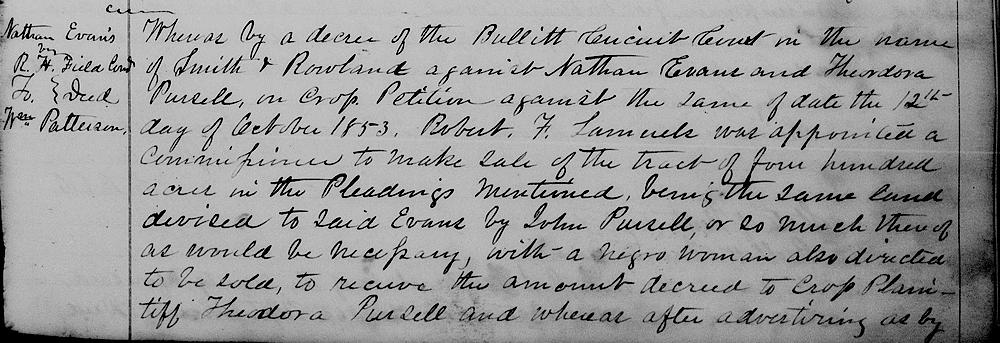 Nathan Evans
by
R. H. Field Com
To. } Deed
Wm Patterson,
Whereas by a decree of the Bullitt Circuit Court in the name
of Smith & Rowland aganist Nathan Evans and Theodora
Pursell, on Cross Petition against the same of date the 12th
day of October 1853. Robert. F. Samuels was appointed a
Commissioner to make sale of the tract of four hundred
acres in the Pleadings mentioned, being the same land
devised to said Evans by John Pursell, or so much there of
as would be necessary, with a negro woman also directed
to be sold, to receive the amount decreed to Cross Plain-
tiff Theodora Pursell and whereas after advertiring as by